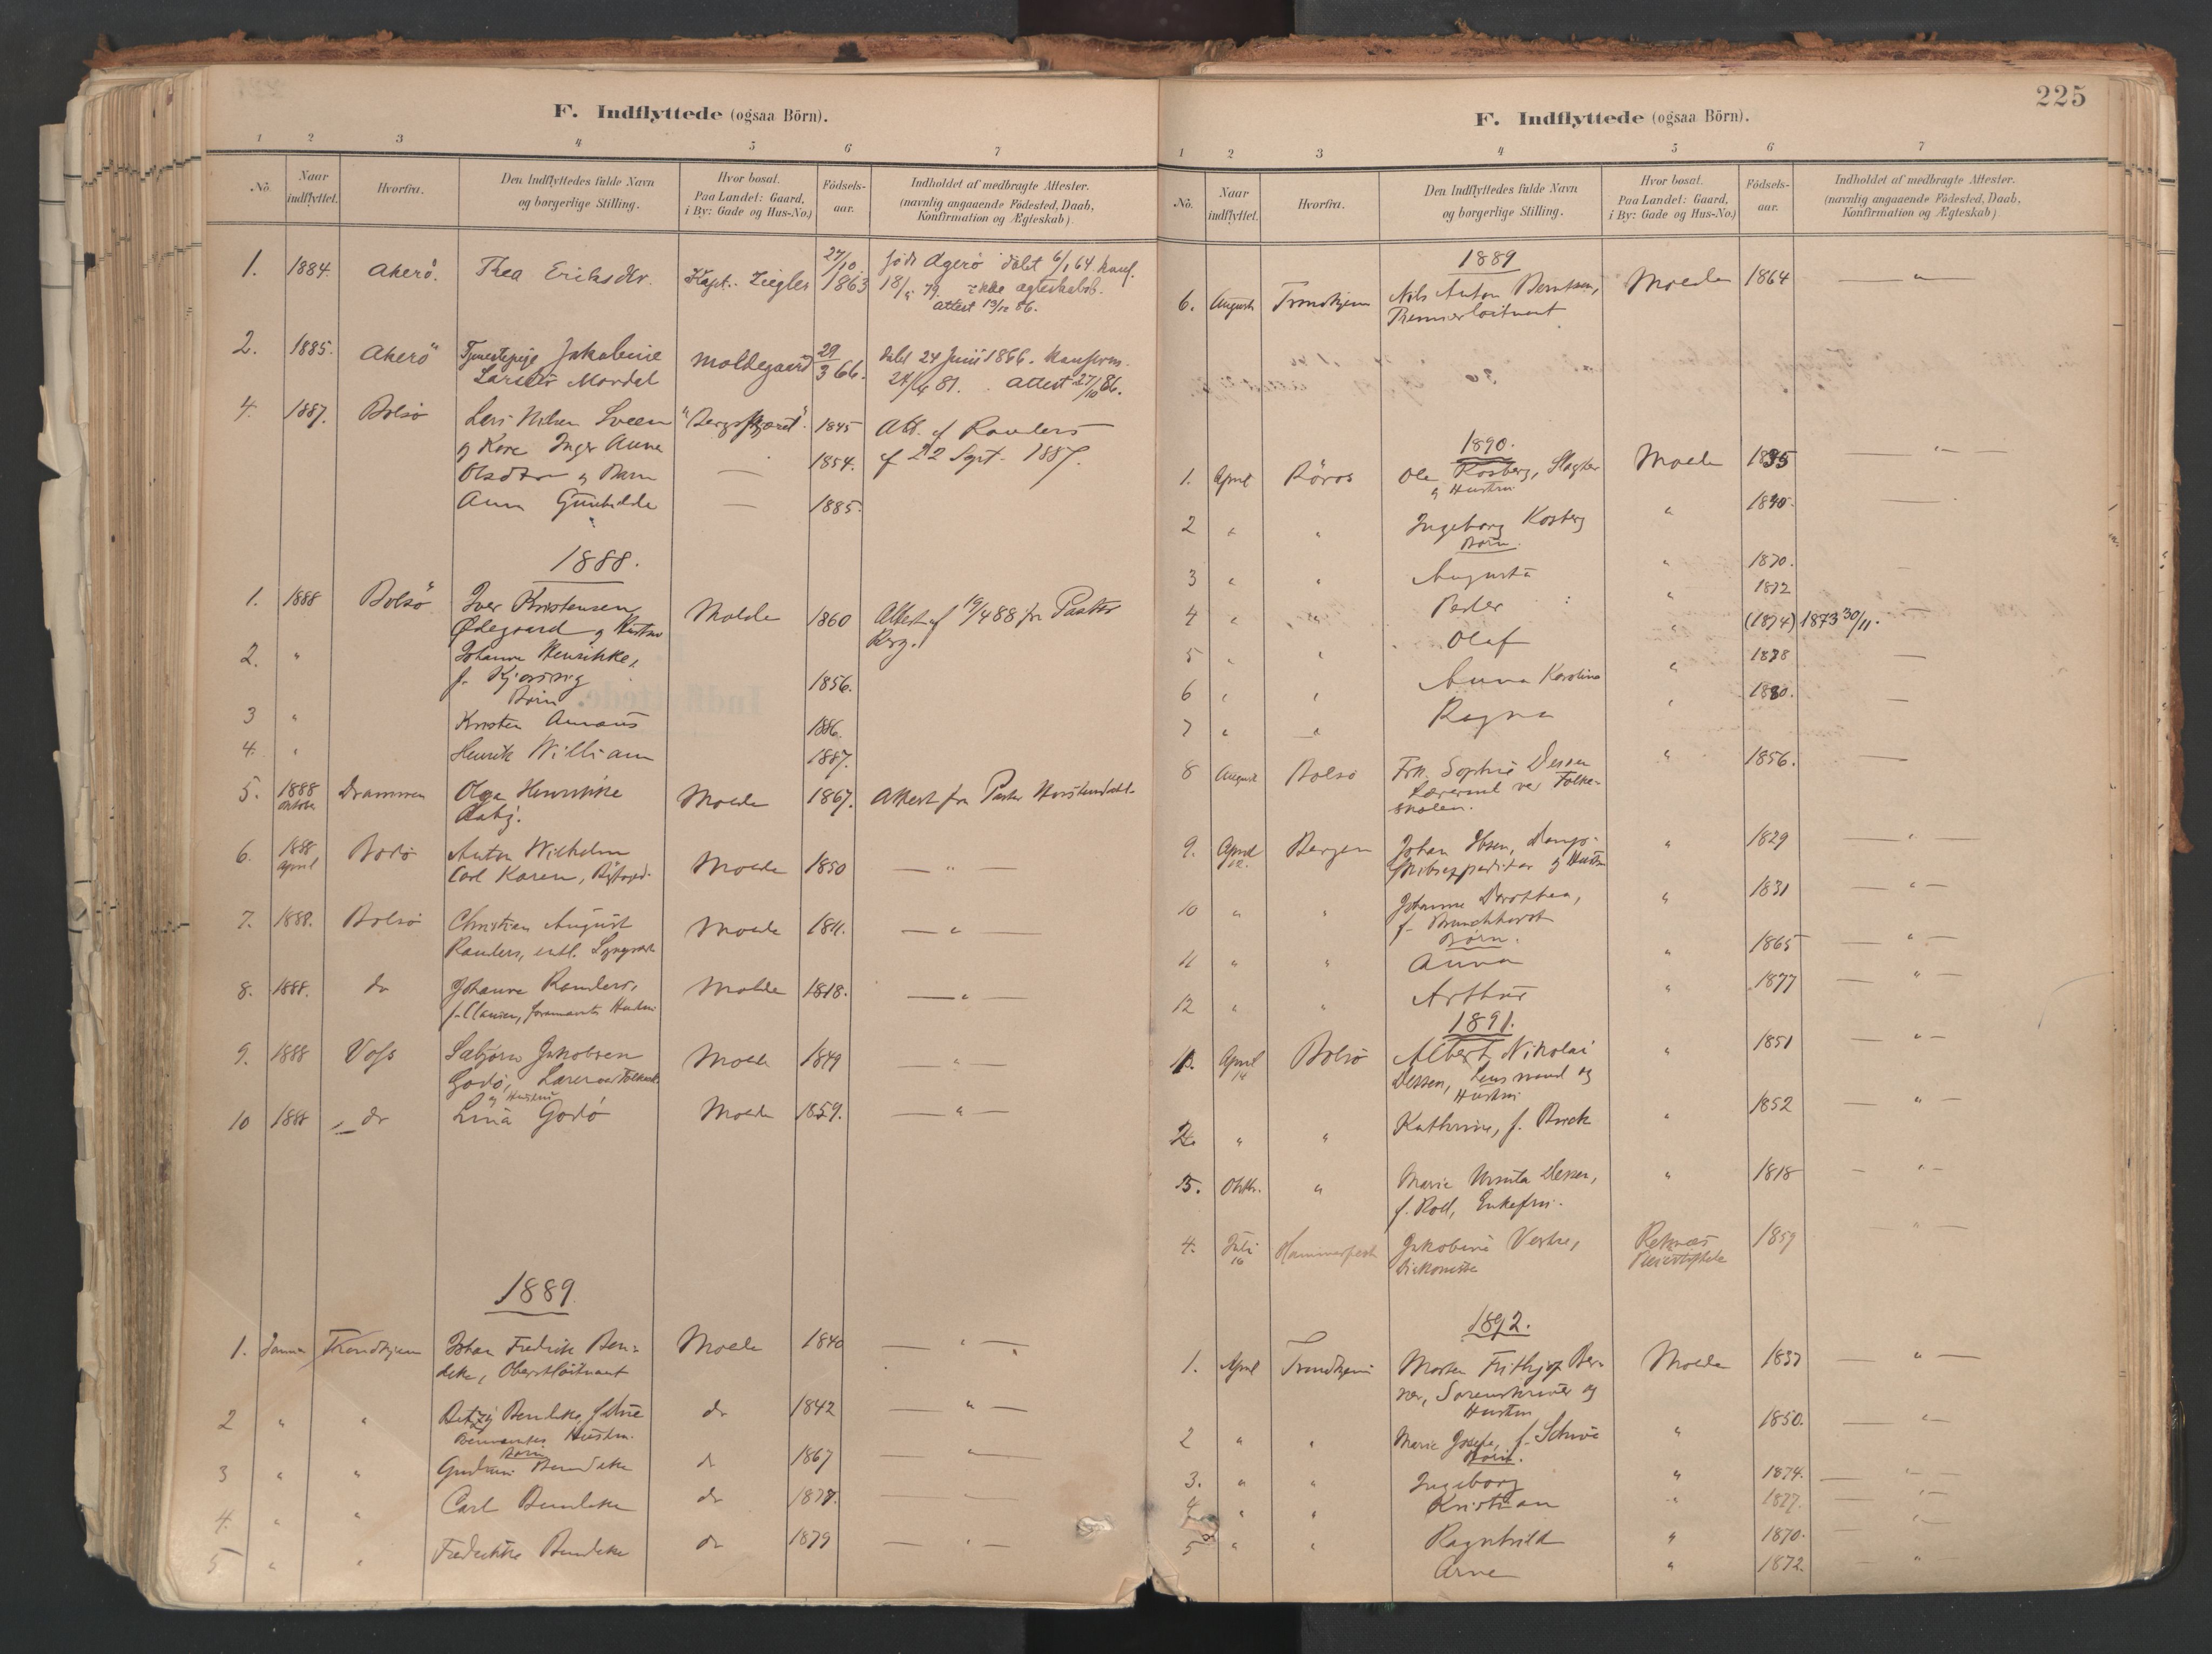 F. Indflyttede (ogsaa Börn).
1 2 3 4 5 6 7
No. Naar indflyttet. Hvorfra. Den Indflyttedes fulde Navn og borgerlige Stilling. Hvor bosat. Paa Landet: Gaard, i By: Gade og Hus-No.) Födsels-aar. Indholdet af medbragte Attester. (navnlig angaaende Födested, Daab, Konfirmation og Ægteskab).
1. 1884. Akerö. Thea Eriksdtr. Kapt. Ziegler 27/10 1863 född Agerö döbt 6/1 64. konf.
18/5 79. ikke ægteskabsb.
attest 13/12 86.
2. 1885. Akerö Tjenestepige Jakobine Moldegaard 29/3 66. döbt 24 Juni 1866. Konfirm.
Larsdtr Mordal 24/4 81. Attest 27/10 86.
4. 1887. Bolsö Lars Nilsen Sveen "Bergstjæret" 1845 Att. af Randers
g Kone Inger Anne 1854. af 22 Sept. 1887.
Olsdtr g Barn
Ann Gunhilda — 1885.
1888.
1. 1888 Bolsö Iver Kristensen Molde 1860 Attest af 19/4 88 fra Pastor
Ødegaard g Hustru Berg.
2. " Johanne Henrikke,
f. 1856.
Börn
3 " Kristen 1886.
4. " Henrik William 1887.
5. 1888 Oktober Drammen Olga Henrikke Molde 1867. Attest fra Pastor
6. 1888 April Bolsö Anton Wilhelm Molde 1850 — " —
Carl Koren,
7. 1888. Bolsö Christian August Molde 1811. — " —
Randers, entl.
8. 1888. do Johanne Randers, Molde 1818. — " —
f. Clausen, forannævntes Hustru
9. 1888 Voss Sæbjörn Jakobsen Molde 1849 — " —
Godö, Lærer ved Folkesk.
g Hustru
10 1888 " do Lina Godö Molde 1859. — " —
1889
1. Januar Trondhjem Johan Fredrik Ben- Molde 1840 — " —
deke, Oberstlöitnant
2 " " Betzy Bendeke, do 1842 — " —
Hustru.
Börn
3 " " Gudrun Bendeke do 1867 — " —
4. " " Carl Bendeke do 1878. — " —
5 " " Fredrikke Bendeke do 1879 — " —
225
F. Indflyttede (ogsaa Börn).
1 2 3 4 5 6 7
No. Naar indflyttet. Hvorfra. Den Indflyttedes fulde Navn og borgerlige Stilling. Hvor bosat. Paa Landet: Gaard, i By: Gade og Hus-No.) Födsels-aar. Indholdet af medbragte Attester. (navnlig angaaende Födested, Daab, Konfirmation og Ægteskab)
1889
6. August Trondhjem Nils Anton Berntsen, Molde 1864 — " —
Premierlöitnant
1890.
1. April Röros Ole Kosberg, Slagter Molde 1835 — " —
g Hustru
2 " " Ingeborg Kosberg " 1840. —
Börn.
3 " " Augusta " 1870. —
4 " " Peder " 1872
5 " " Olaf " (1874) 1873 30/11.
6 " " Anna Karolina " 1878 —
7 " " Ragna " 1880. —
8 August Bolsö Frk. Sophie Dessen " 1856. —
Lærerinde ved Folke-
skolen.
9. April 12. Bergen Johan Ibsen, Damp- " 1829 — " —
skibsexpeditör g Hustru
10 " " Johanne Dorothea, " 1831 — " —
f. Brunchhorst
Börn.
11 " " Anna " 1865 — " —
12 " " Arthur " 1877 — " —
1891.
1. April 14 Bolsö Albert Nikolai " 1851 — " —
Dessen, Lensmand og
Hustru
2. " " Kathrine, f. Buck " 1852 — " —
3. Oktbr. " Marie Ursula Dessen, " 1818 — " —
f. Roll, Enkefru.
4. Juli 16 Hammerfest Jakobine Vestre, Reknæs 1859 — " —
Diakonisse Pleiestiftelse
1892.
1. April Trondhjem Morten Frithjof Ber- Molde 1837 — " —
ner, Sorenskriver og
Hustru
2 " " Marie Josefa, f. Schive " 1850. — " —
Börn.
3. " " Ingeborg " 1874. — " —
4 " " Kristian " 1877. — " —
5 " " Ragnhild " 1870. — " —
Arne " 1872. — " —